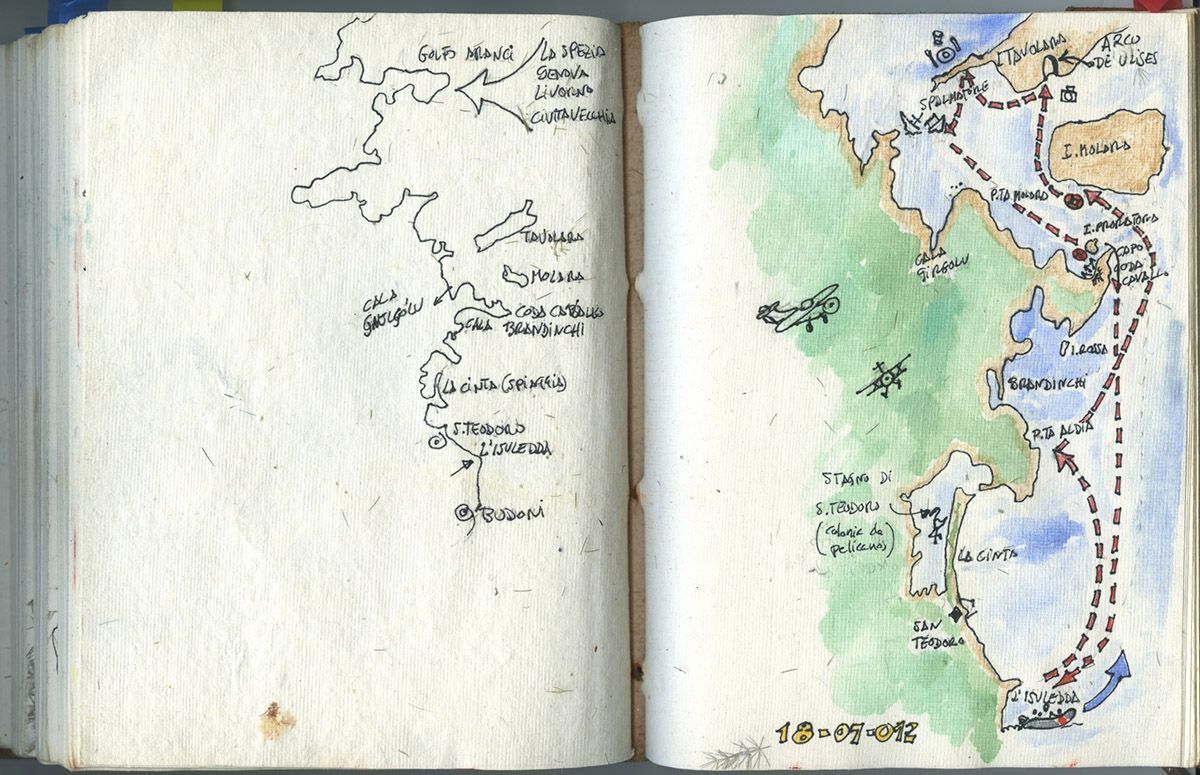 GOLFO ARANCI
LA SPEZIA
GENOVA
LIVORNO
CIVITAVECCHIA
TAVOLARA
MOLARA
CALA
CODA CAVALLO
CALA BRANDINCHI
LA CINTA (SPIAGGIA)
S. TEODORO
L'ISULEDDA
BUDONI
I TAVOLARA
ARCO
DE ULISES
SPALMATORE
I. MOLARA
P.TA MOLARA
I. PRORATORA
CAPO
CODA
CAVALLO
CALA
GIRGOLU
I. ROSSA
BRANDINCHI
P.TA ALDIA
STAGNO DI
S. TEODORO
(colonia de
pelicanos)
LA CINTA
SAN
TEODORO
L'ISULEDDA
18-07-012